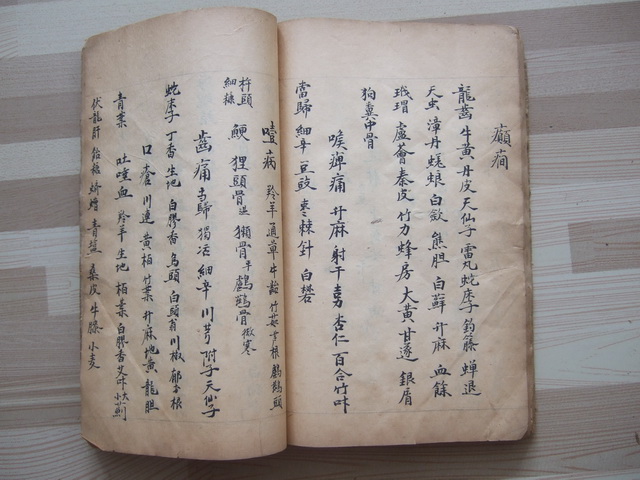 癲癇
龍齒 牛黃 丹皮 天仙子 雷丸 蛇床子 鈎藤 蟬退
天虫 漳丹 蜣蜋 白歛 熊胆 白蘚 升麻 血餘
玳瑁 盧薈 秦皮 竹力 蜂房 大黃 甘遂 銀屑
狗糞中骨
喉痺痛 升麻 射干 杏仁 百合 竹叶
當歸 細辛 豆豉 棗棘針 白礬
噎病 羚羊 通草 牛 竹茹 根 鸕鶿頭
杵頭細糠 鯁 狸頭骨 獺骨 鸕鶿骨
齒痛 當歸 獨活 細辛 川芎 附子 天仙子
蛇床子 丁香 生地 白膠香 烏頭 白頭翁 川椒 郁李根
口瘡 川連 黃栢 竹葉 升麻 地黃 龍胆
青葉 吐嗤血 羚羊 生地 栢葉 白膠香 艾叶 大小薊
伏龍肝 飴糖 青鹽 桑皮 牛膝 小麦